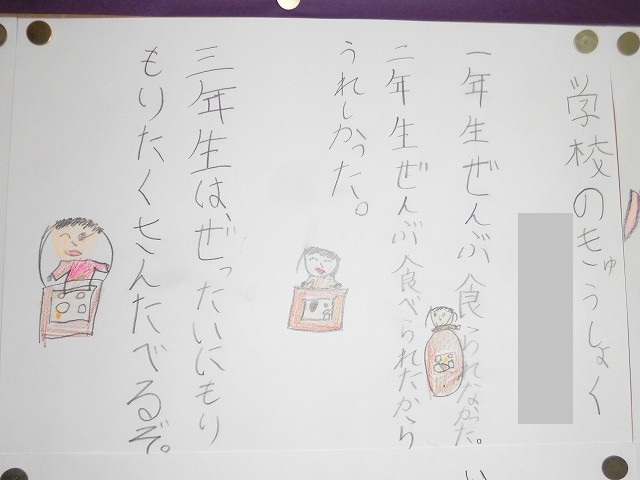 学校のぎゅうしょく
一年生ぜんぶ食られなかた。
二年生ぜんぶ食べられたから
うれしかった。
三年生は、ぜったいにもり
もりたくさんたべるぞ。